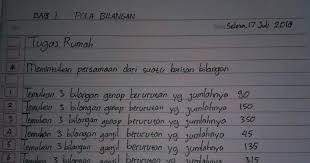 BAB I. POLA BILANGAN
Selasa, 17 Juli 2018
Tugas Rumah
* Menentukan persamaan dari suatu barisan bilangan
1 Temukan 3 bilangan genap berurutan yg jumlahnya 90
2 Temukan 3 bilangan genap berurutan yg jumlahnya 150
3 Temukan 3 bilangan genap berurutan yg jumlahnya 350
4 Temukan 3 bilangan ganjil berurutan yg jumlahnya 45
5 Temukan 3 bilangan ganjil berurutan yg jumlahnya 135
Temukan 3 bilangan ganjil berurutan yg jumlahnya 315